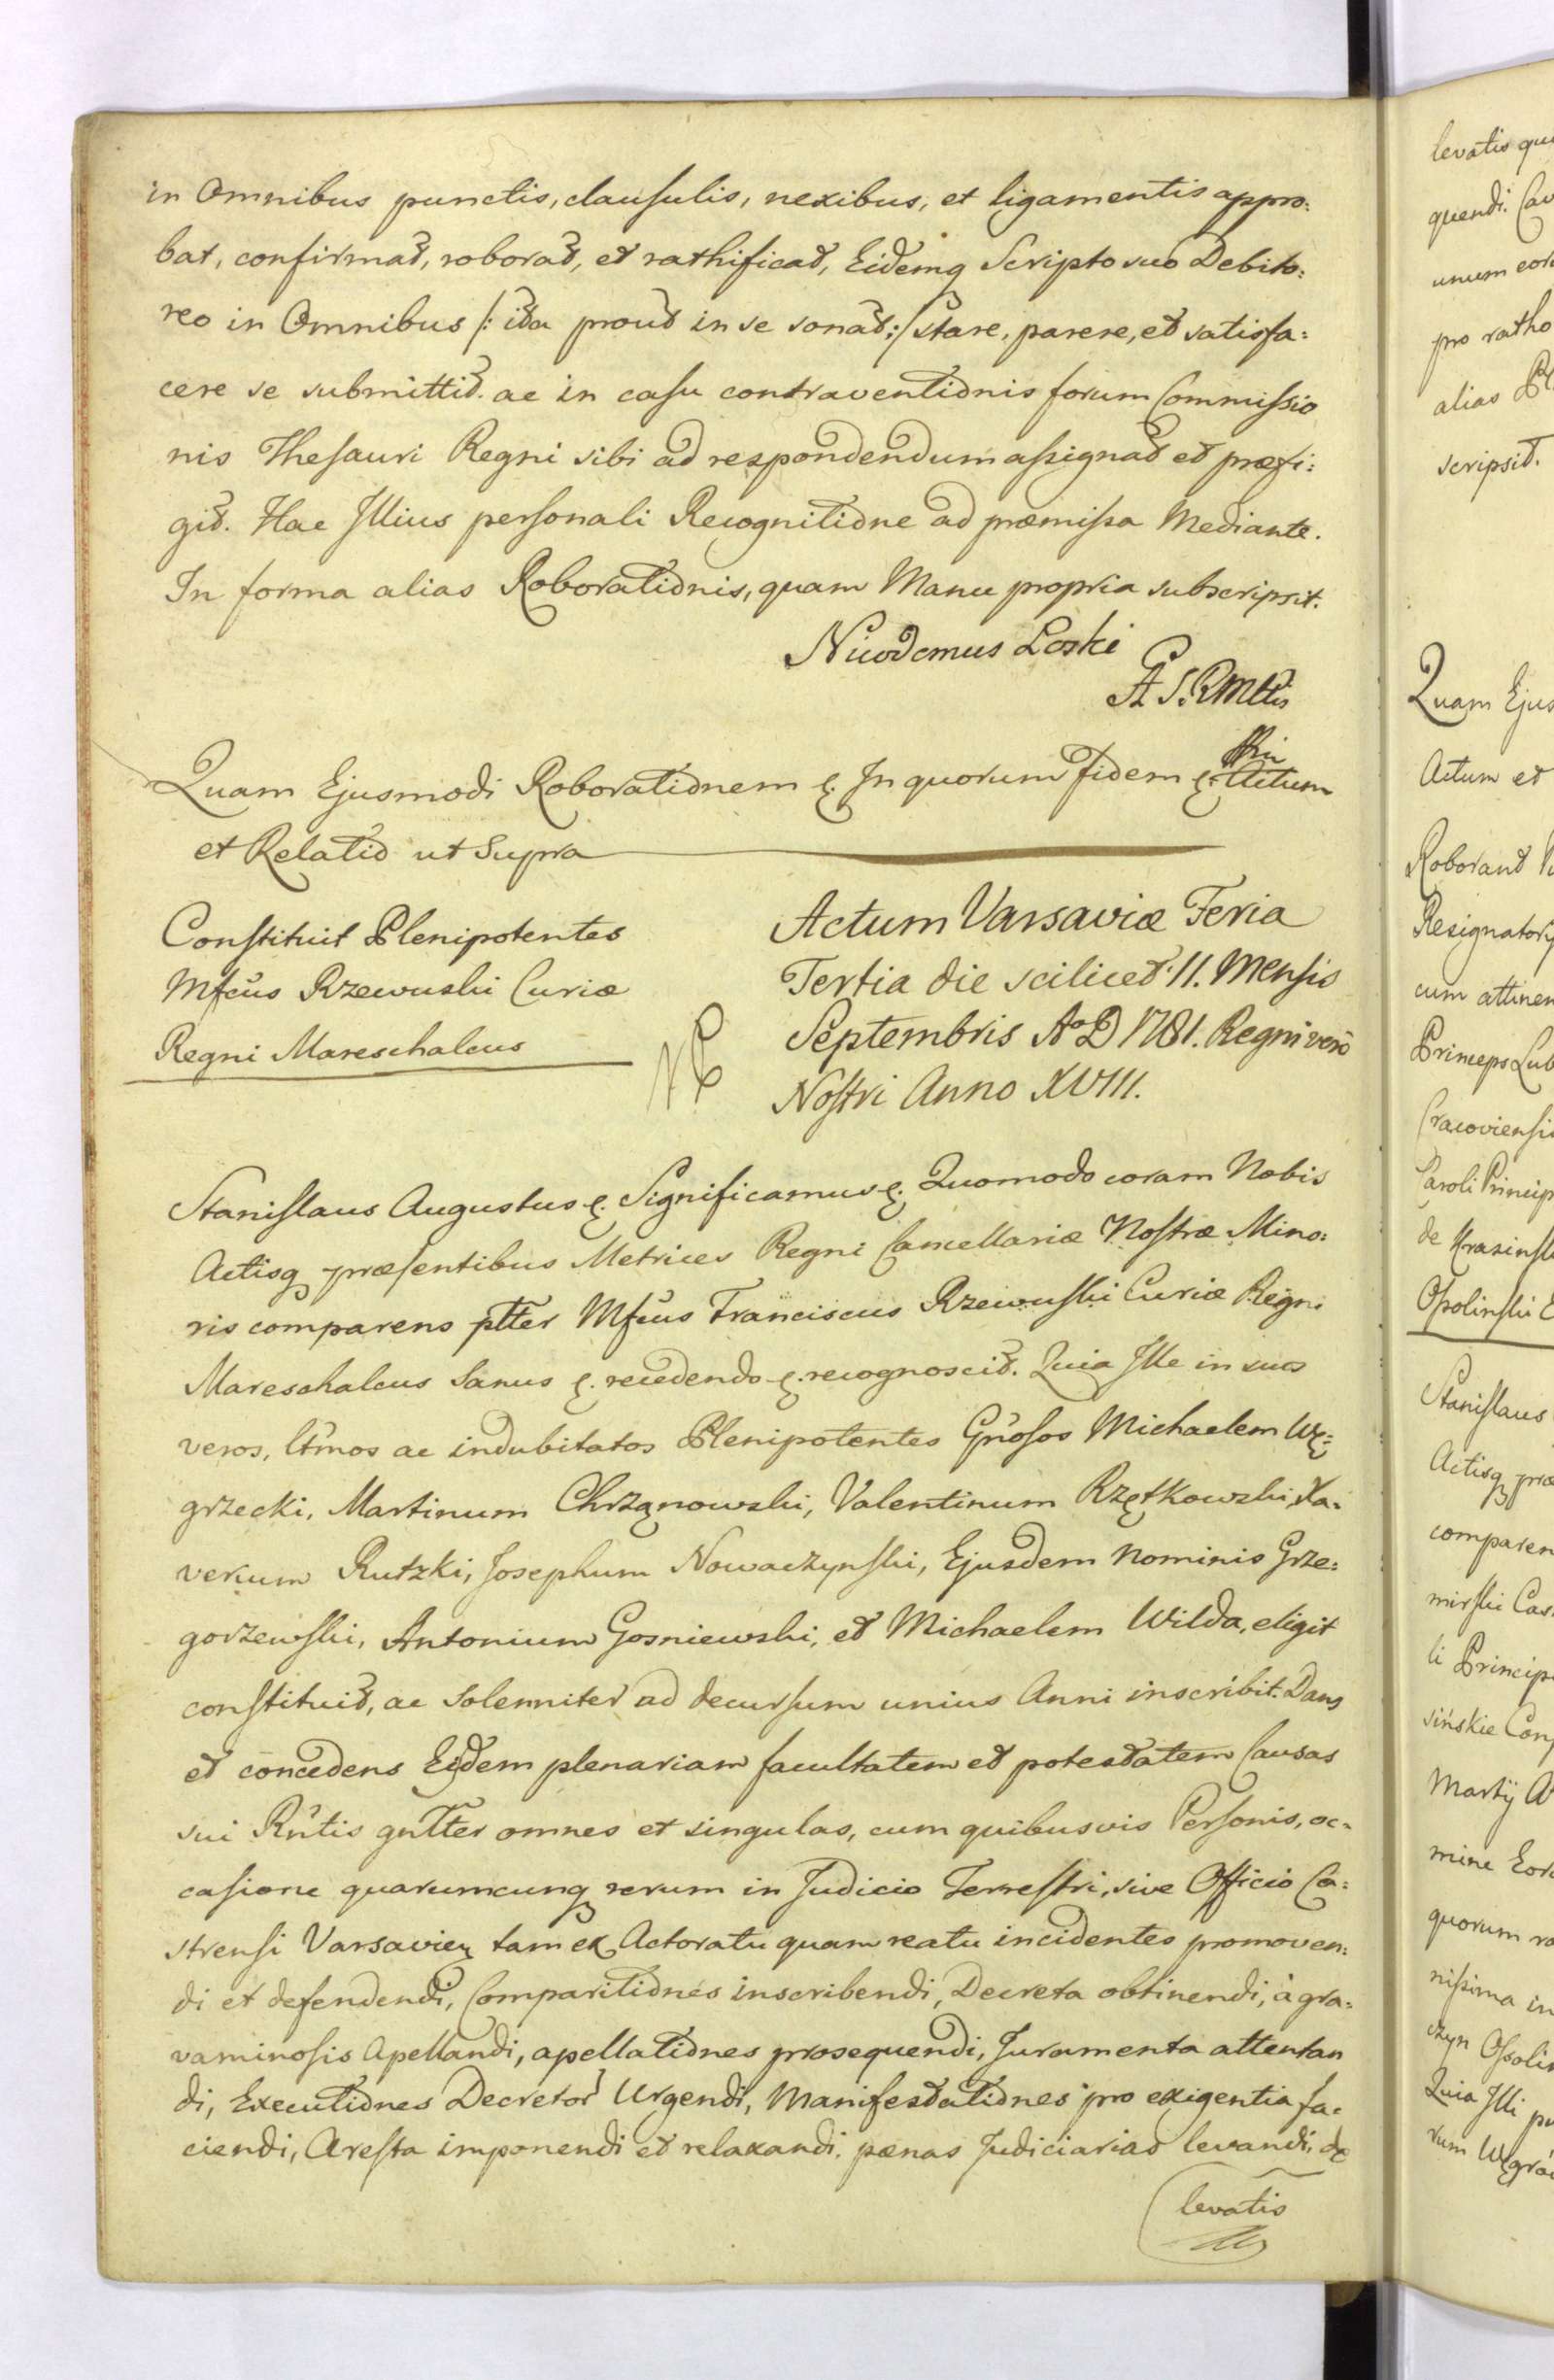 in Omnibus punctis, clausulis, nexibus, et ligamentis appro:
bat, confirmat, roborat, et rathificat, Eidemq Scripto suo Debito:
reo in Omnibus /: ita prout in se sonat :/ stare, parere, et satisfa:
cere se submittit. ac in casu contraventionis forum Commissio
nis Thesauri Regni sibi ad respondendum assignat et præfi:
git. Hac Illius personali Recognitione ad præmissa Mediante.
In forma alias Roborationis, quam Manu propria subscripsit.
Nicodemus Loski
Quam Ejusmodi Roborationem &. In quorum fidem &. Actum
et Relatio ut Supra
Constituit Plenipotentes
Mfcus Rzewuski Curiæ
Regni Mareschalcus
Actum Varsaviæ Feria
Tertia die scilicet 11. Mensis
Septembris Ao D 1781. Regni vero
Nostri Anno XVIII.
Stanislaus Augustus &. Significamus &. Quomodo coram Nobis
Actisq præsentibus Metrices Regni Cancellariæ Nostræ Mino:
ris comparens pltter Mfcus Franciscus Rzewuski Curiæ Regni
Mareschalcus Sanus &. recedendo &. recognoscit. Quia Ille in suos
veros, ltimos ac indubitatos Plenipotentes Gnosos Michaelem Wę:
grzecki, Martinum Chrzanowski, Valentinum Rzętkowski, Xa:
verium Rutzki, Josephum Nowaczynski, Ejusdem Nominis Grze:
gorzewski, Antonium Gosniewski, et Michaelem Wilda, eligit
constituit, ac Solenniter ad decursum unius Anni inscribit. Dans
et concedens Eisdem plenariam facultatem et potestatem Causas
sui Rntis gntter omnes et singulas, cum quibusvis Personis, oc:
casione quarumcunq rerum in Judicio Terrestri, sive Officio Ca:
strensi Varsavien tam ex Actoratu quam reatu incidentes promoven:
di et defendendi, Comparitiones inscribendi, Decreta obtinendi, à gra:
vaminosis Apellandi, apellationes prosequendi, Juramenta attentan
di, Executiones Decretor Urgendi, Manifestationes pro exigentia fa:
ciendi, Aresta imponendi et relaxandi. pænas Judiciarias levandi, de
levatis
levatis
quendi.
unum
pro ratho
alias
scripsit.
Quam Ejus
Actum et
Roborant
Resignatory
cum attinen
Princeps Lub
Cracoviensi
Caroli Princip
de Krasinsk
Ossolinski
Stanislaus
Actisq præ
comparen
mirski Cas
li Princip
sińskie Con
Martij
mine
quorum
nissima in
czyn Ossolin
Quia Illi
rum